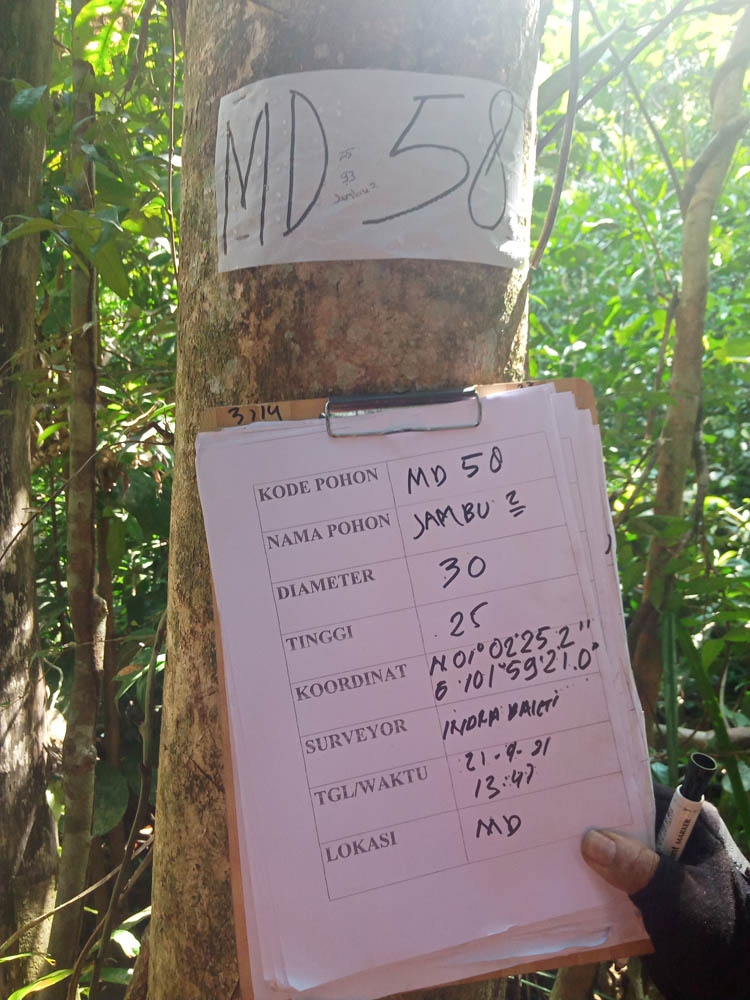 MD 58
93
Jambu 2
3714
KODE POHON MD 58
NAMA POHON JAMBU 2
DIAMETER 30
TINGGI 25
KOORDINAT N 01° 02'25.2"
E 101°59'21.0"
SURVEYOR INDRA
TGL/WAKTU 21-9-21
13:47
LOKASI MD
MARKER